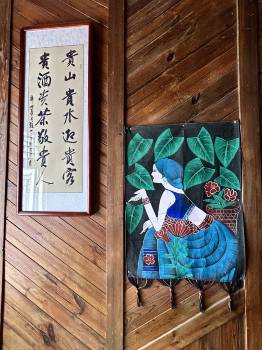 貴山貴水迎貴客
貴酒貴茶敬貴人